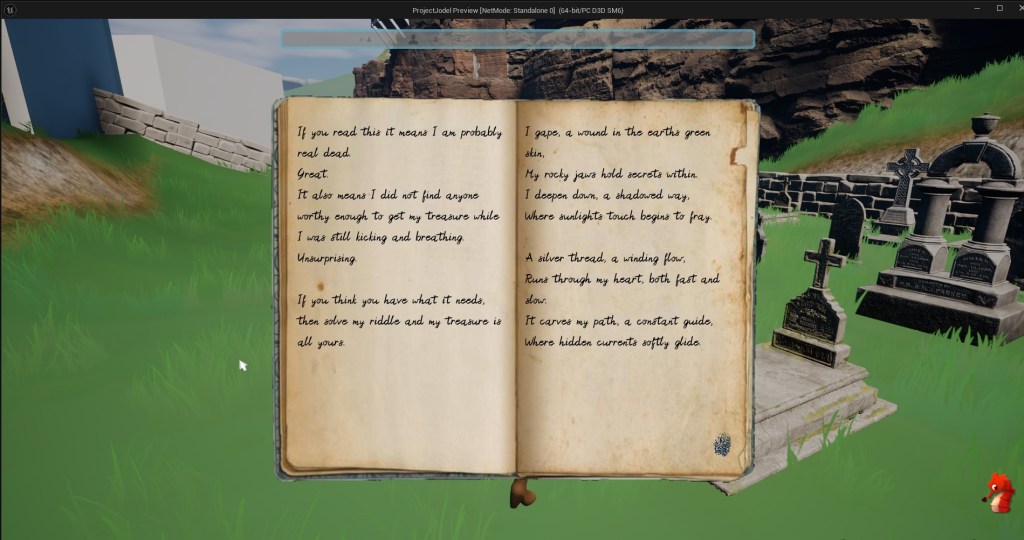 ProjectJodel Preview [NetMode: Standalone 0] (64-bit/PC D3D SM6)
If you read this it means I am probably
real dead.
Great.
It also means I did not find anyone
worthy enough to get my treasure while
I was still kicking and breathing.
Unsurprising.
If you think you have what it needs,
then solve my riddle and my treasure is
all yours.
I gape, a wound in the earths green
skin,
My rocky jaws hold secrets within.
I deepen down, a shadowed way,
Where sunlights touch begins to fray.
A silver thread, a winding flow,
Runs through my heart, both fast and
slow.
It carves my path, a constant guide,
Where hidden currents softly glide.